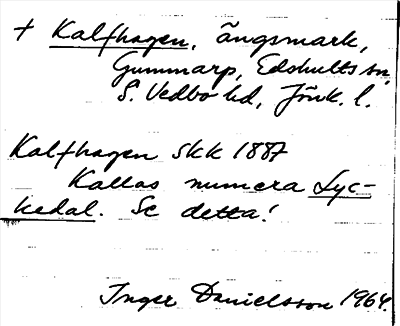 + Kalfhagen, ängsmark,
Gummarp, Edshults sn,
S. Vedbo hd, Jönk. l.
Kalfhagen Skk 1887
Kallas numera Lyc-
kedal. Se detta!
Inger Danielsson 1964.